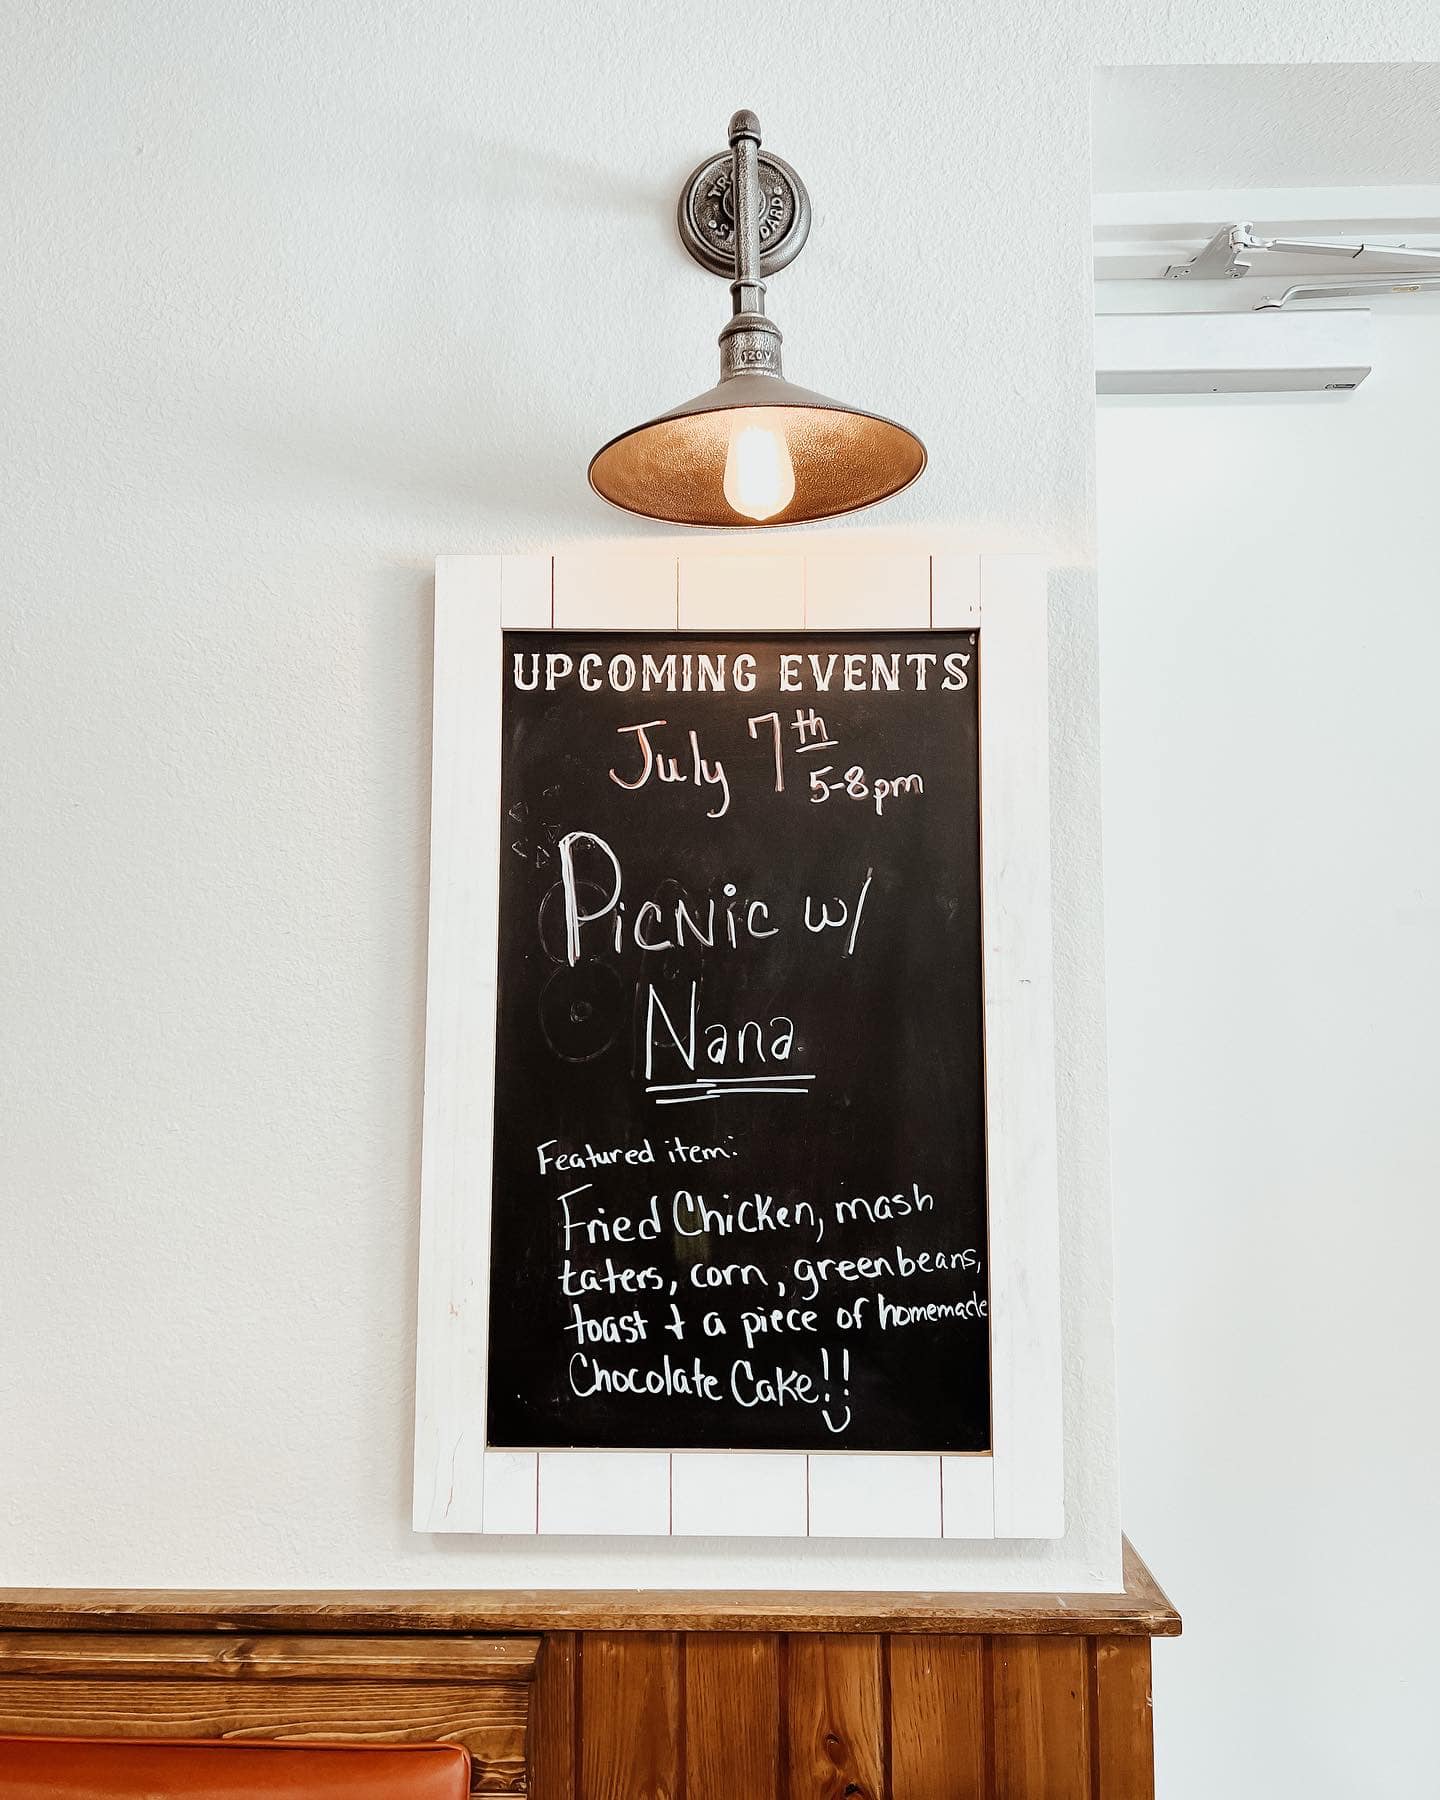 120V
UPCOMING EVENTS
July 7th
5-8pm
Picnic w/
Nana
Featured item:
Fried Chicken, mash
taters, corn, greenbeans,
toast & a piece of homemade
Chocolate Cake!!